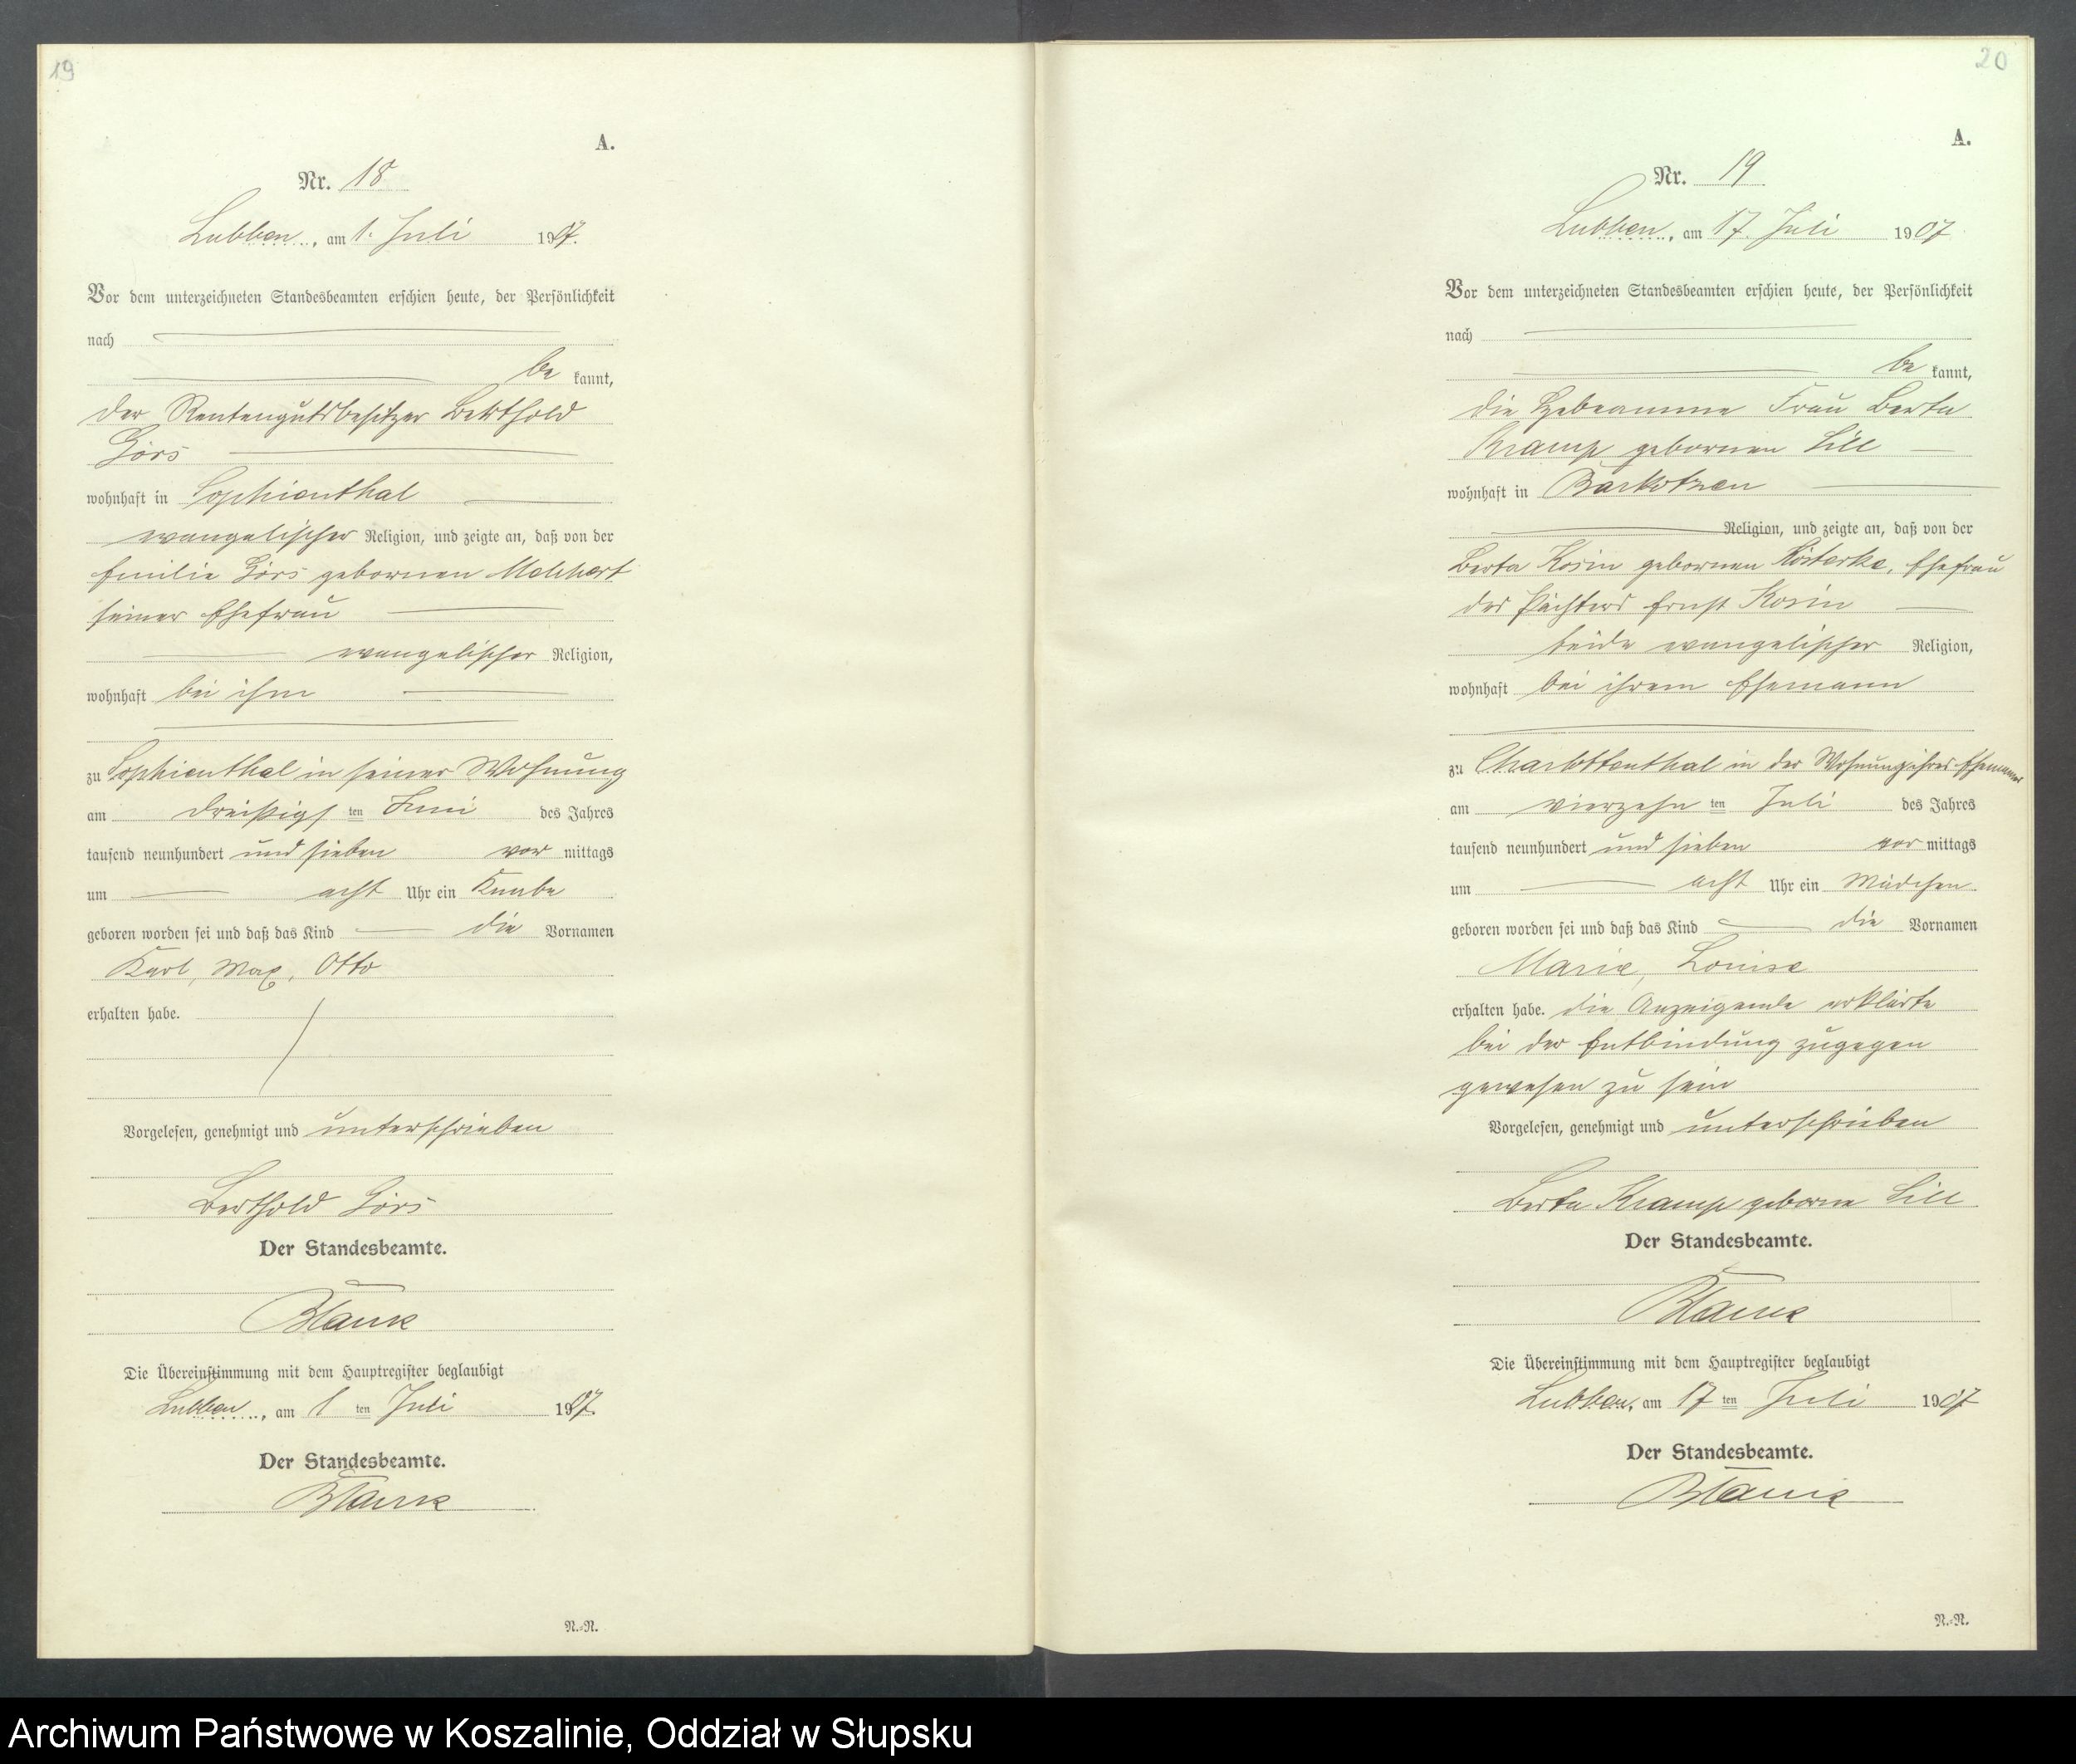 19
A.
Nr. 18
Lubben, am 1. Juli 1907.
Vor dem unterzeichneten Standesbeamten erschien heute, der Persönlichkeit
nach
be kannt,
der Rentengutsbesitzer Berthold
Görs
wohnhaft in Sophienthal
evangelischer Religion, und zeigte an, daß von der
Emilie Görs gebornen
seiner Ehefrau
evangelischer Religion,
wohnhaft bei ihm
zu Sophienthal in seiner Wohnung
am dreißigs ten Juni des Jahres
tausend neunhundert und sieben vor mittags
um acht Uhr ein Knabe
geboren worden sei und daß das Kind die Vornamen
Karl, Max, Otto
erhalten habe.
Vorgelesen, genehmigt und unterschrieben
Berthold Görs
Der Standesbeamte.
Blank
Die Übereinstimmung mit dem Hauptregister beglaubigt
Lubben, am 1 ten Juli 1907.
Der Standesbeamte.
Blank
N.-N.
20
A.
Nr. 19
Lubben, am 17. Juli 1907
Vor dem unterzeichneten Standesbeamten erschien heute, der Persönlichkeit
nach
be kannt,
die Hebeamme Frau Berta
Kramp gebornen Lill
wohnhaft in Barkotzen
Religion, und zeigte an, daß von der
Berta Kosin gebornen Kösterke, Ehefrau
des Pächters Ernst Kosin
beide evangelischer Religion,
wohnhaft bei ihrem Ehemann
zu Charlottenthal in der Wohnung ihres Ehemannes
am vierzehn ten Juli des Jahres
tausend neunhundert und sieben vor mittags
um acht Uhr ein Mädchen
geboren worden sei und daß das Kind die Vornamen
Marie, Louise
erhalten habe. die Anzeigende erklärte
bei der Entbindung zugegen
gewesen zu sein
Vorgelesen, genehmigt und unterschrieben
Berta Kramp geborne Lill
Der Standesbeamte.
Blank
Die Übereinstimmung mit dem Hauptregister beglaubigt
Lubben, am 17 ten Juli 1907
Der Standesbeamte.
Blank
N.-N.
Archiwum Państwowe w Koszalinie, Oddział w Słupsku